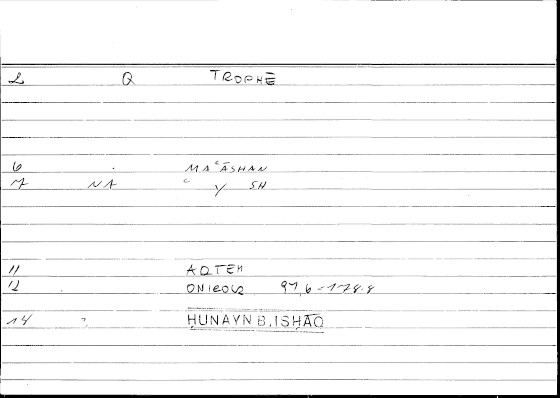 2 Q TROPHĒ
6 . MAʿĀSHAN
7 NA ʿ Y SH
11 AQTEM
12 ONIROCR 97,6 - 178.8
14 ḤUNAYN B. ISḤĀQ